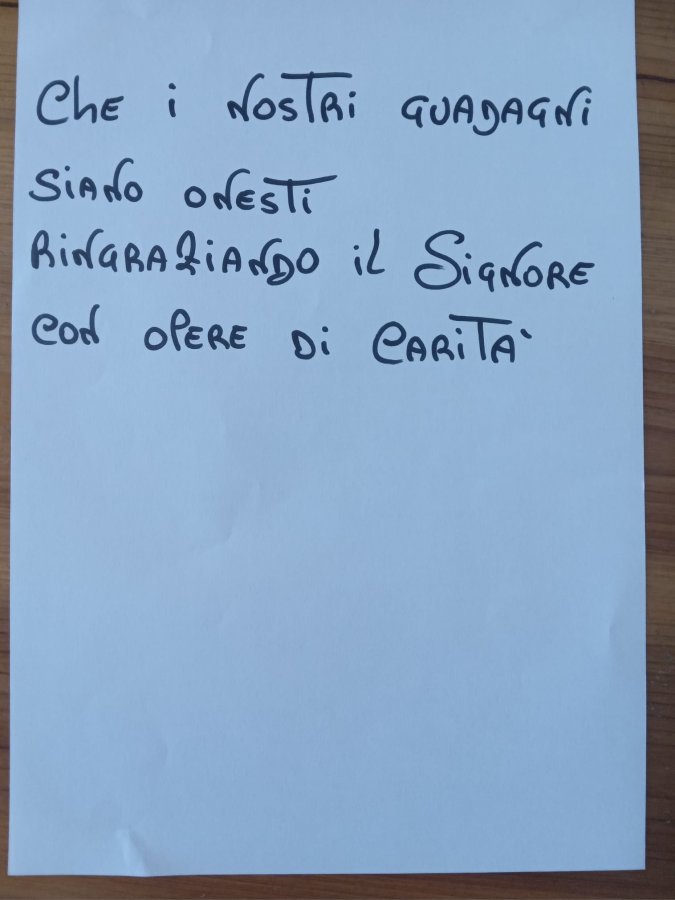 Che i nostri guadagni
siano onesti
ringraziando il Signore
con opere di carità